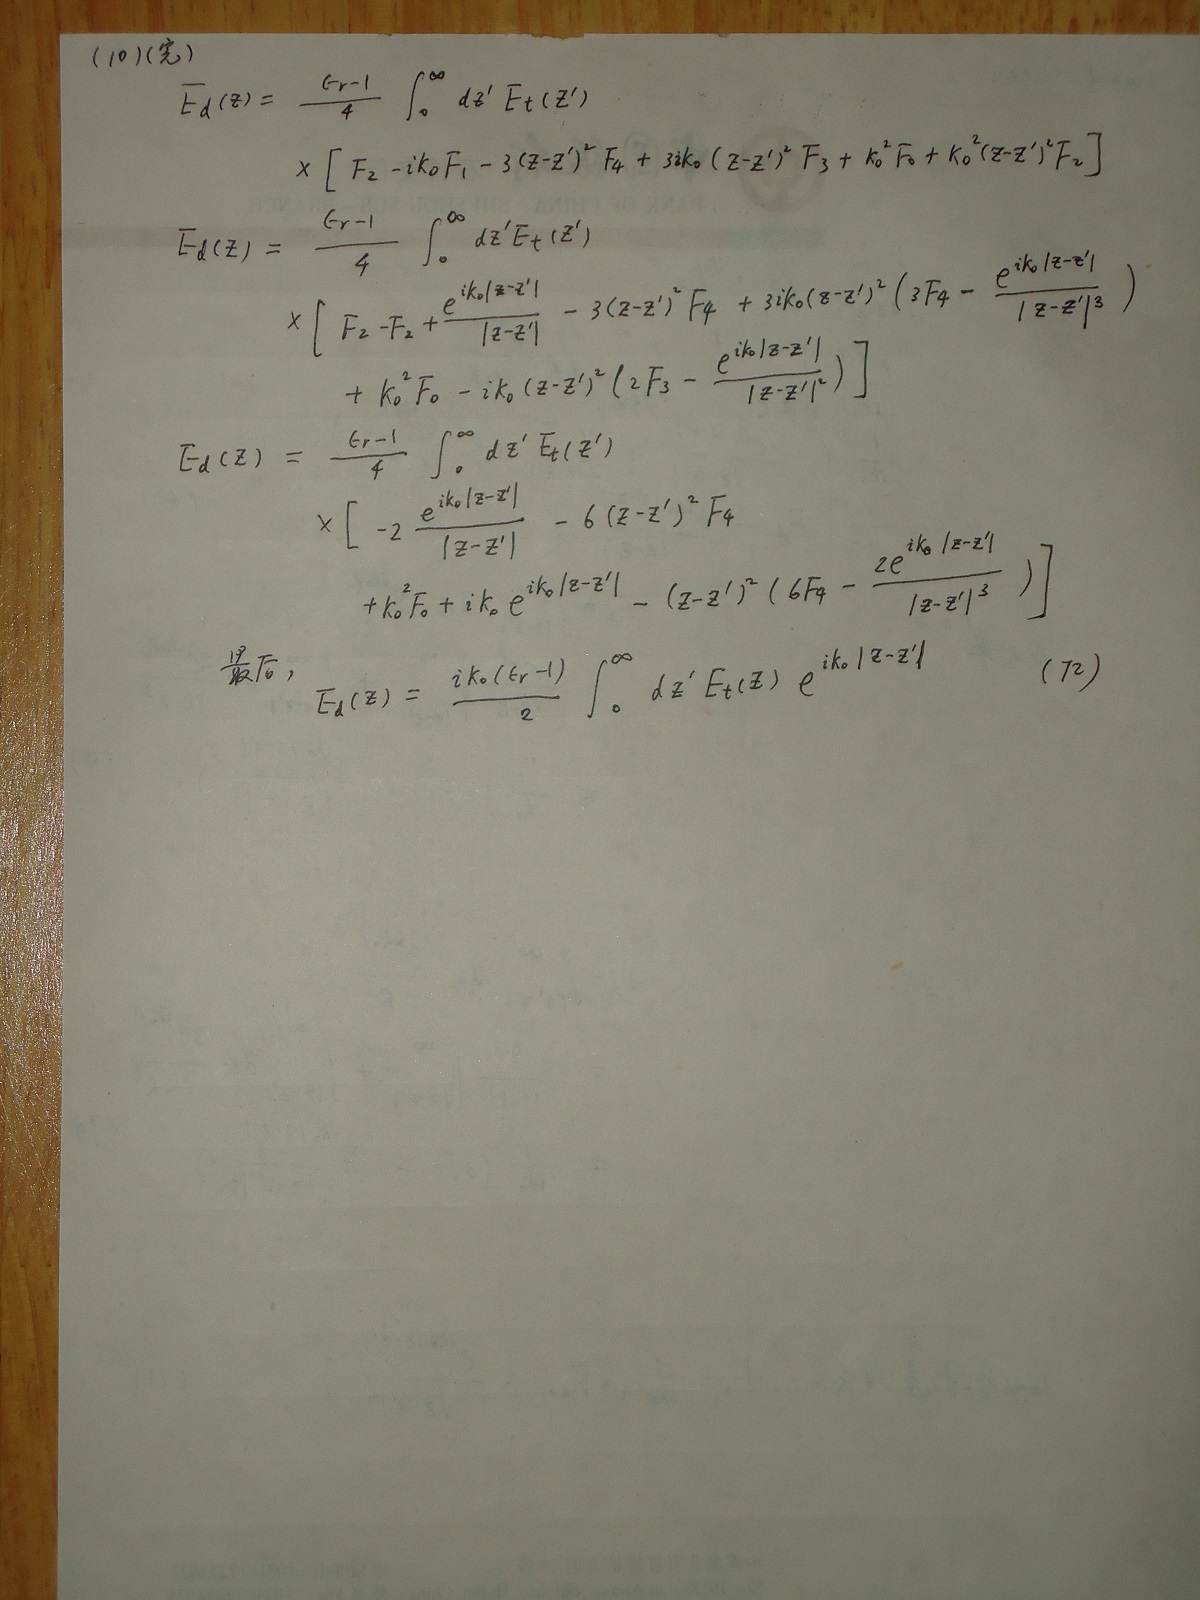 (10)(完)
Ed(z) = εr-1/4 ∫₀^∞ dz' Et(z')
× [F₂ - ik₀F₁ - 3(z-z')² F₄ + 3ik₀(z-z')² F₃ + k₀²F₀ + k₀²(z-z')²F₂]
Ed(z) = εr-1/4 ∫₀^∞ dz' Et(z')
× [F₂ - F₂ + e^{ik₀|z-z'|}/|z-z'| - 3(z-z')² F₄ + 3ik₀(z-z')² (3F₄ - e^{ik₀|z-z'|}/|z-z'|³)
+ k₀²F₀ - ik₀(z-z')² (2F₃ - e^{ik₀|z-z'|}/|z-z'|²)]
Ed(z) = εr-1/4 ∫₀^∞ dz' Et(z')
× [-2 e^{ik₀|z-z'|}/|z-z'| - 6(z-z')² F₄
+k₀²F₀ + ik₀ e^{ik₀|z-z'|} - (z-z')² (6F₄ - 2e^{ik₀|z-z'|}/|z-z'|³)]
最后,
Ed(z) = ik₀(εr-1)/2 ∫₀^∞ dz' Et(z) e^{ik₀|z-z'|} (72)